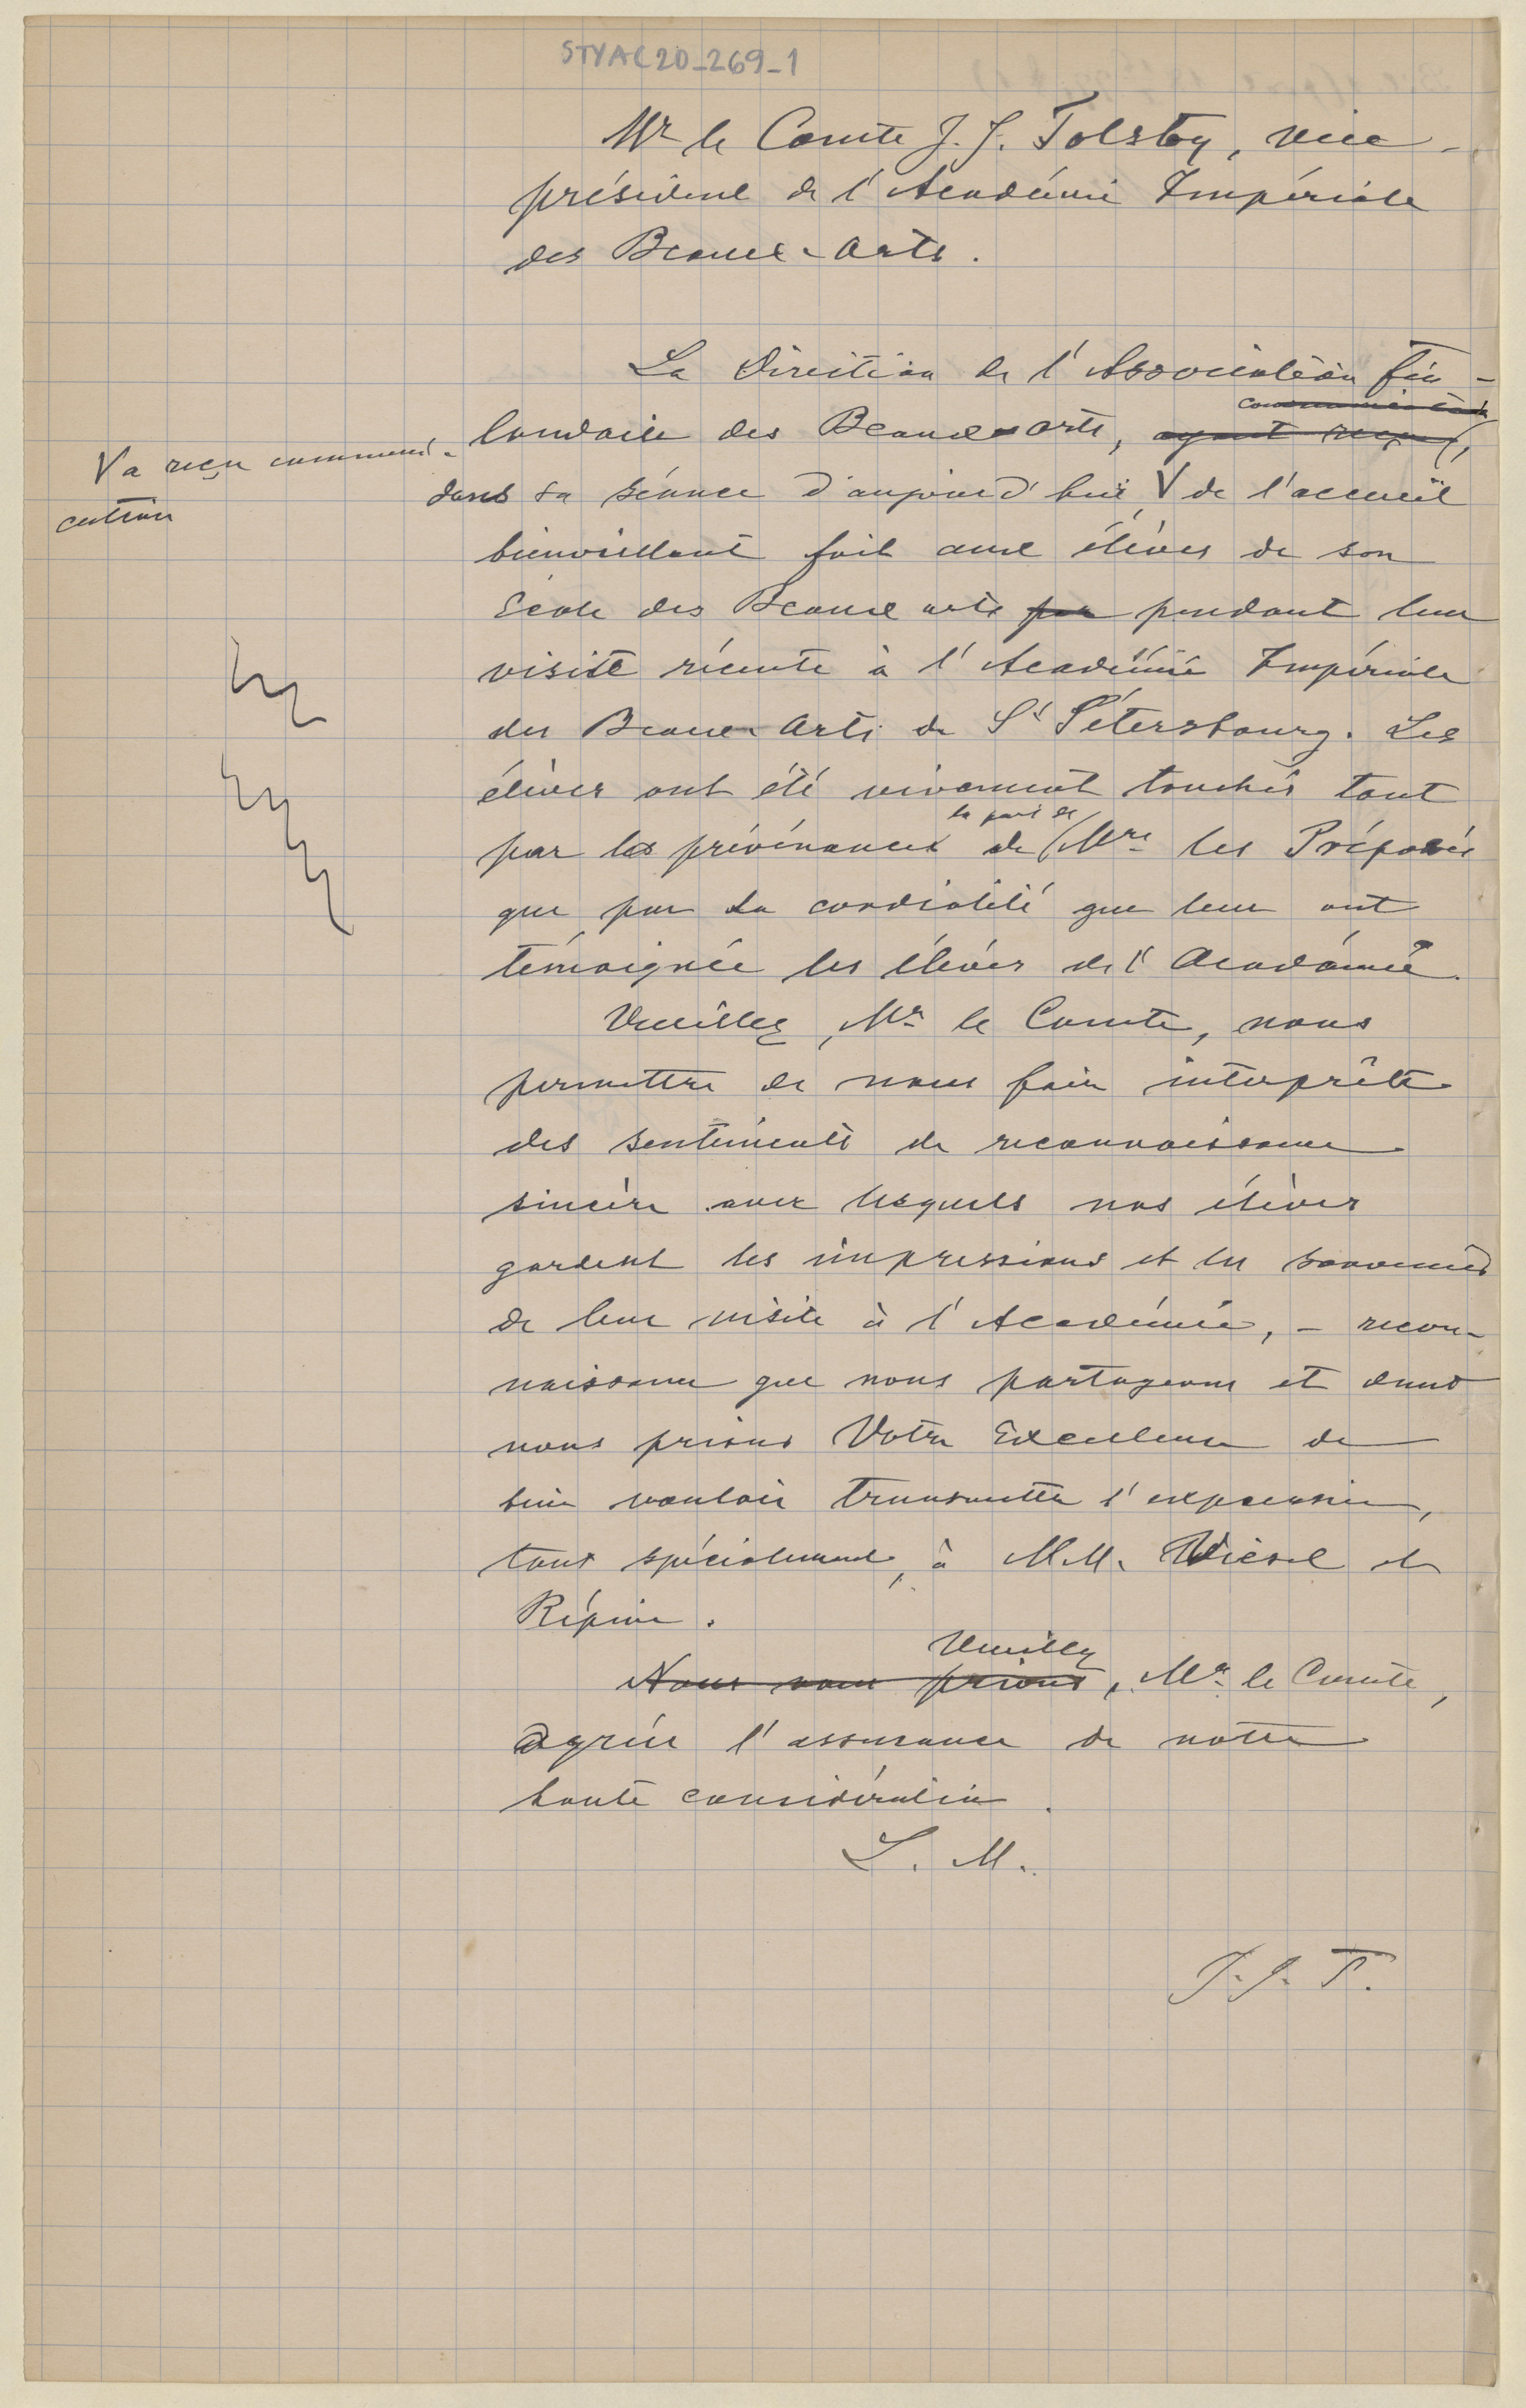 STYAC20_269_1
Mr le Comte J. J. Tolstoy, vice-
président de l'Académie Impériale
des Beaux-Arts.
La Direction de l'Association fin-
communication
landaise des Beaux-arts, ayant reçu,
V a reçu communi-
cation
dans sa séance d'aujourd'hui V de l'accueil
bienveillant fait aux élèves de son
École des Beaux arts par pendant leur
visite récente à l'Académie Impériale
des Beaux-Arts de St Pétersbourg. Les
élèves ont été vivement touchés tant
la part de
par les prévénances de Mrs les Préposés
que par la cordialité que leur ont
témoignée les élèves de l'Académie.
Veuillez, Mr le Comte, nous
permettre de nous faire interprète
des sentiments de reconnaissance
sincère avec lesquels nos élèves
gardent les impressions et les souvenirs
de leur visite à l'Académie, - recon-
naissance que nous partageons et dont
nous prions Votre Excellence de
bien vouloir transmettre l'expression,
tout spécialement, à M.M. Wiesel et
Répine.
Veuillez
Nous vous prions, Mr le Comte,
agréer l'assurance de notre
haute considération.
L. M.
J. J. T.